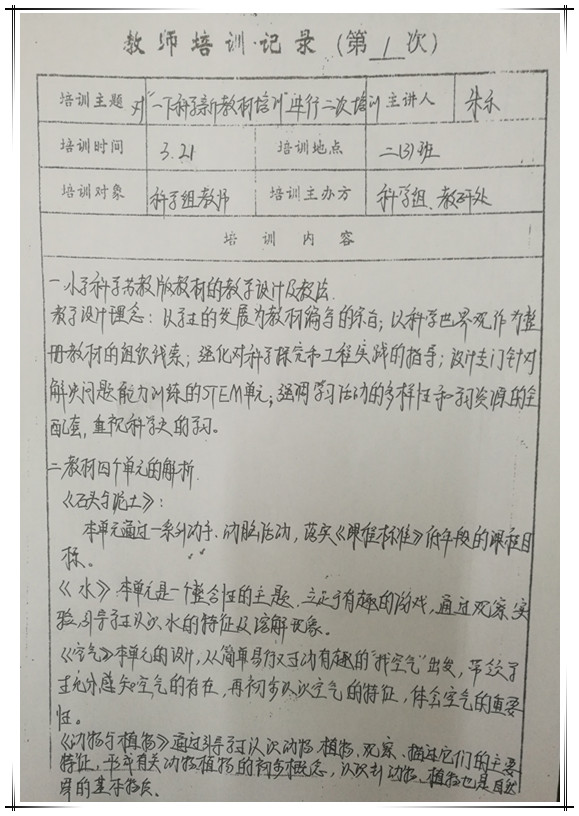 教师培训·记录(第1次)
培训主题 对"一下科学新教材培训"进行二次培训 主讲人 朱乐
培训时间 3.21 培训地点 二(3)班
培训对象 科学组教师 培训主办方 科学组、教研处
培训内容
一.小学科学苏教版教材的教学设计及教法.
教学设计理念:以学生的发展为教材编写的宗旨;以科学世界观作为整
册教材的组织线索;强化对科学探究和工程实践的指导;设计专门针对
解决问题能力训练的STEM单元;强调学习活动的多样性和学习资源的全
配套,重视科学史的学习。
二.教材四个单元的解析.
《石头与泥土》:
本单元通过一系列动手、动脑活动,落实《课程标准》低年段的课程目
标。
《水》本单元是一个整合性的主题.立足于有趣的游戏,通过观察、实
验,引导学生认识水的特征及溶解现象。
《空气》本单元的设计,从简单易行又生动有趣的"找空气"出发,带领学
生充分感知空气的存在,再初步认识空气的特征,体会空气的重要
性。
《动物与植物》通过引导学生认识动物、植物、观察、描述它们的主要
特征,形成有关动物植物的初步概念,认识到动物、植物也是自然
界的基本物质。